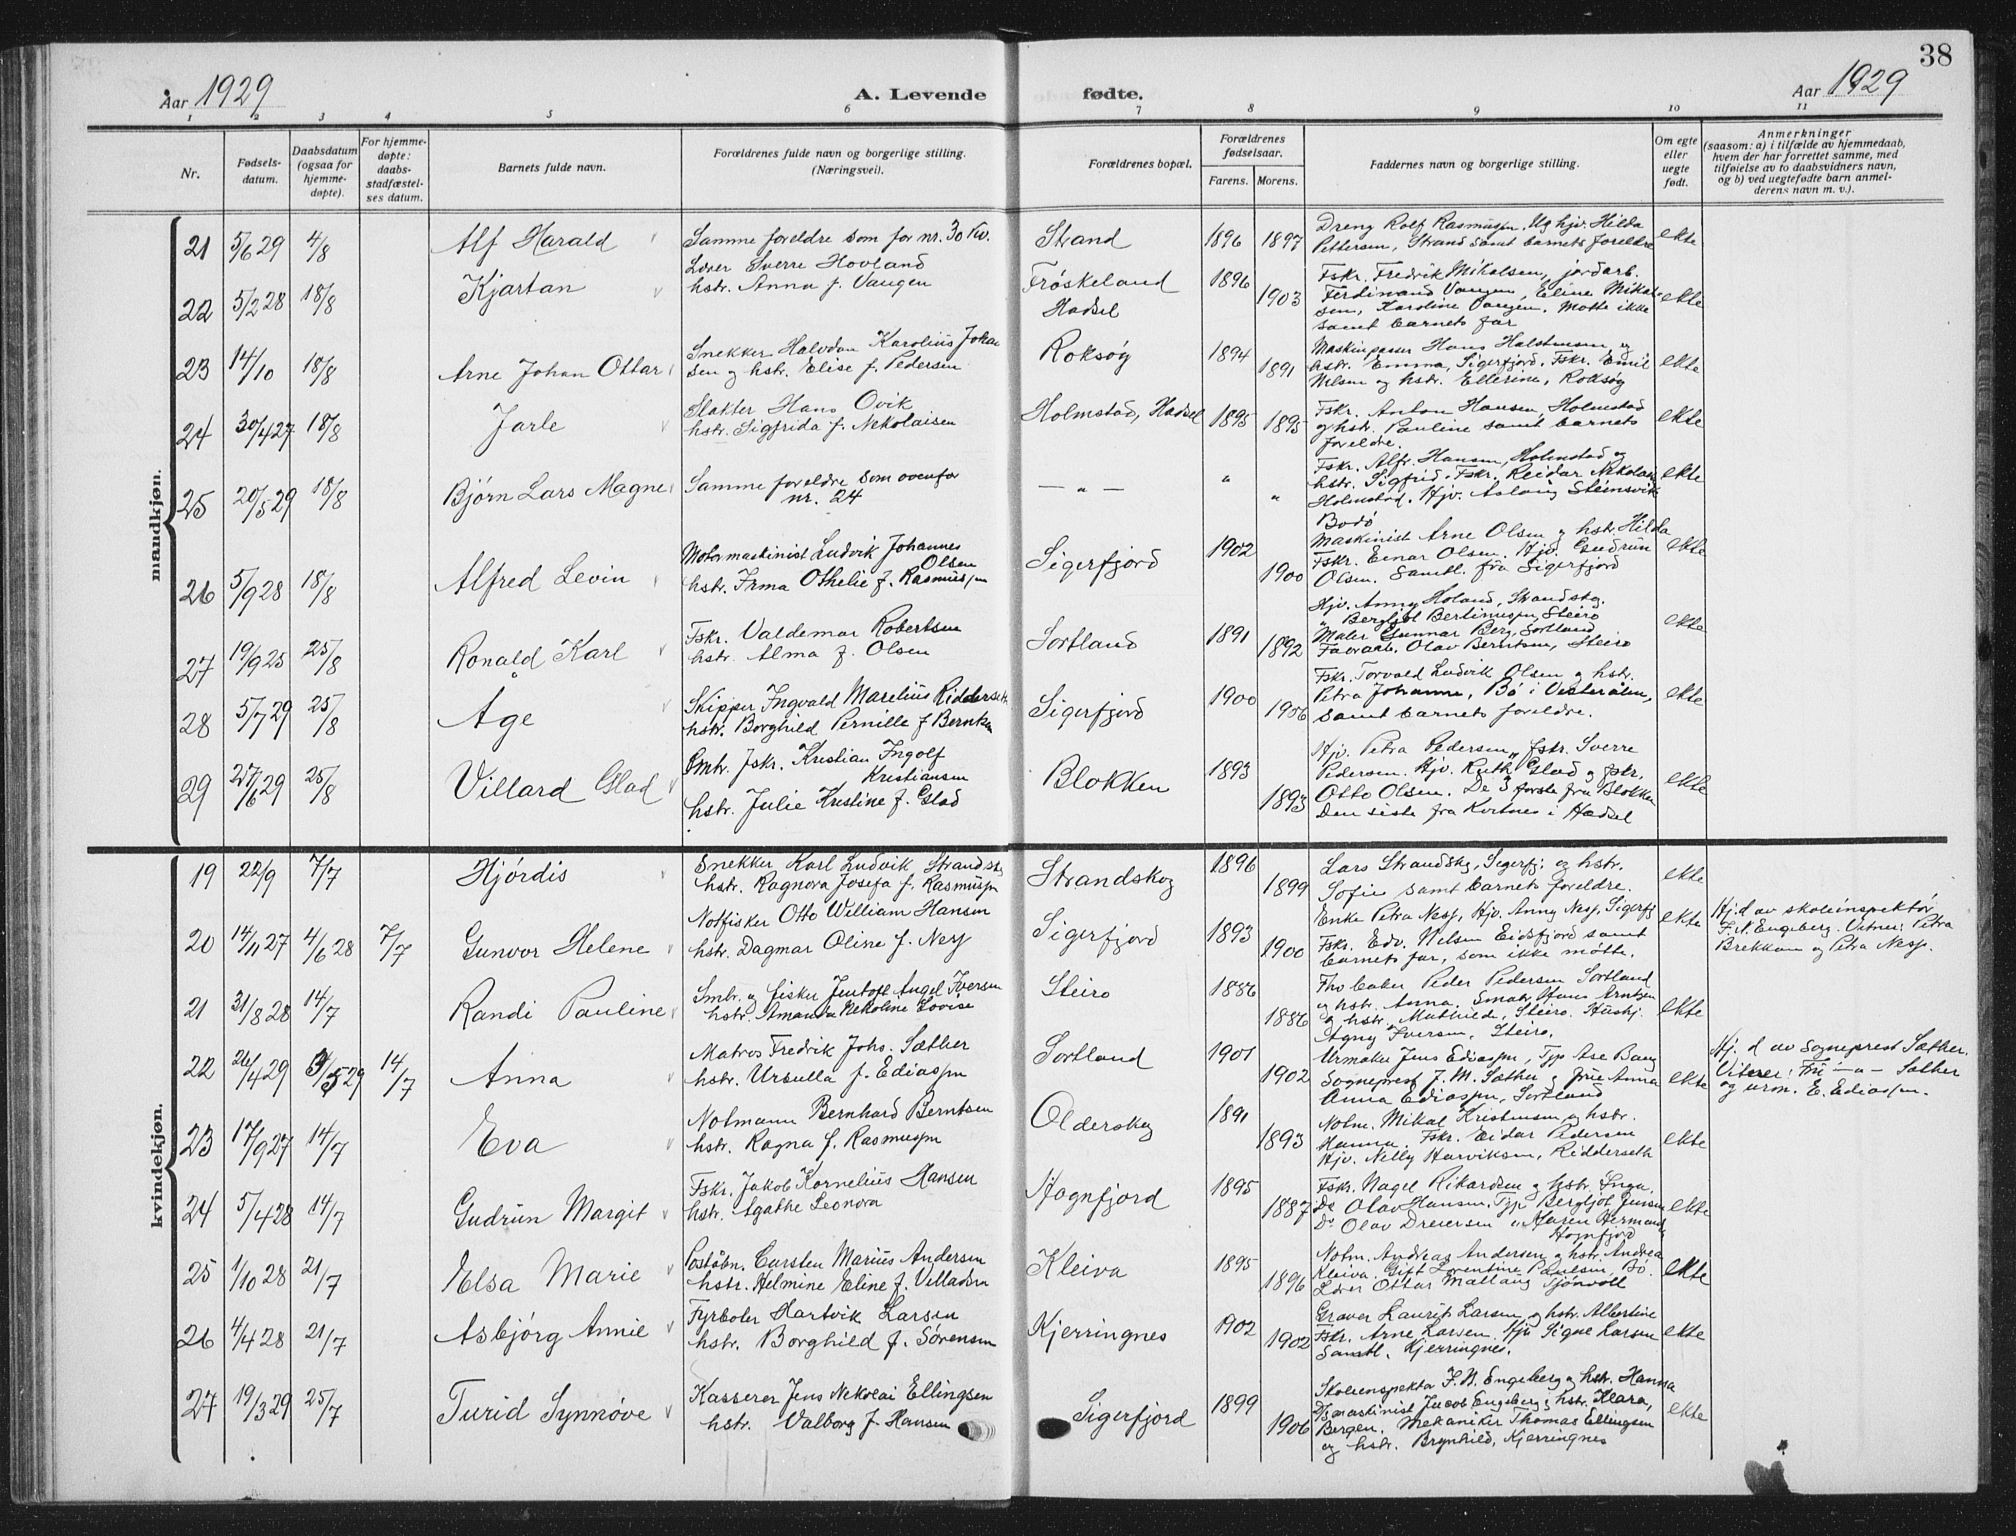 38
Aar 1929
A. Levende fødte.
Aar 1929
1 2 3 4 5 6 7 8 9 10 11
Nr.
Fødsels-
datum.
Daabsdatum
(ogsaa for
hjemme-
døpte).
For hjemme-
døpte:
daabs-
stadfæstel-
ses datum.
Barnets fulde navn.
Forældrenes fulde navn og borgerlige stilling.
(Næringsvei).
Forældrenes bopæl.
Forældrenes
fødselsaar.
Farens. Morens.
Faddernes navn og borgerlige stilling.
Om egte
eller
uegte
født.
Anmerkninger
(saasom: a) i tilfælde av hjemmedaab,
hvem der har forrettet samme, med
tilføielse av to daabsvidners navn,
og b) ved uegtefødte barn anmel-
derens navn m. v.).
mandkjøn.
21 5/6 29 4/8 Alf Harald
Samme foreldre som for nr. 30 Kv.
Strand 1896 1897
Dreng Rolf Rasmussen, Ug. hjv. Hilda
Pettersen, Strand samt barnets foreldre
ekte
22 5/2 28 18/8 Kjartan
Lærer Sverre Hovland
hstr. Anna f. Vangen
Frøskeland
Hadsel
1896 1903
Fskr. Fredrik Mikalsen, jordarb.
Ferdinand Vangen, Eline Mikal-
sen, Karoline Vangen. Møtte ikke
samt barnets far
ekte
23 14/10 18/8 Arne Johan Ottar
Snekker Halvdan Karolius Johan
sen og hstr. Elise f. Pedersen
Roksøy 1894 1891
Maskinpasser Hans Halstensen og
hstr. Emma, Sigerfjord. Fskr. Emil
Nilsen og hstr. Ellerine, Roksøy
ekte
24 30/4 27 18/8 Jarle
Slakter Hans Ovik
hstr. Sigfrida f. Nikolaisen
Holmstad, Hadsel 1895 1895
Fskr. Anton Hansen, Holmstad
og hstr. Pauline samt barnets
foreldre.
ekte
25 20/5 29 18/8 Bjørn Lars Magne
Samme foreldre som ovenfor
nr. 24
— " — " "
Fskr. Alfr. Hansen, Holmstad og
hstr. Sigfrid. Fskr. Reidar Nikolais
Holmstad. Hjv. Aslaug Steinsvik
Bodø
ekte
26 5/9 28 18/8 Alfred Levin
Motormaskinist Ludvik Johannes
Olsen
hstr. Irma Othelie f. Rasmussen
Sigerfjord 1902 1900
Maskinist Arne Olsen og hstr. Hilda
Fskr. Einar Olsen. Hjv. Gudrun
Olsen. Samtl. fra Sigerfjord
ekte
27 19/9 25 25/8 Ronald Karl
Fskr. Valdemar Robertsen
hstr. Alma f. Olsen
Sortland 1891 1892
Hjv. Anny Holand, Strandskg.
" Bergljot Bertinussen, Steiro
Maler Gunnar Berg, Sortland
Favrarb. Olav Berntsen, Steiro
ekte
28 5/7 29 25/8 Åge
Skipper Ingvald Marelius Ridderseth
hstr. Borghild Pernille f. Berntsen
Sigerfjord 1900 1906
Fskr. Torvald Ludvik Olsen og hstr.
Petra Johanne, Bø i Vesterålen,
samt barnets foreldre.
ekte
29 27/6 29 25/8 Villard Glad
Smbr. fskr. Kristian Ingolf
Kristiansen
hstr. Julie Kristine f. Glad
Blokken 1893 1893
Hjv. Petra Pedersen, fskr. Sverre
Pedersen. Hjv. Ruth Glad og fskr.
Otto Olsen. De 3 første fra Blokken
Den siste fra Kvitnes i Hadsel
ekte
kvindekjøn.
19 22/9 7/7 Hjørdis
Snekker Karl Ludvik Strandskg
hstr. Ragnora Josefa f. Rasmussen
Strandskog 1896 1899
Lars Strandskg, Sigerfj. og hstr.
Sofie samt barnets foreldre.
ekte
20 14/11 27 4/6 28 7/7 Gunvor Helene
Notfisker Otto William Hansen
hstr. Dagmar Oline f. Ness
Sigerfjord 1893 1900
Enke Petra Ness, Hjv. Anny Ness, Sigerfj
Fskr. Edv. Nilsen Eidsfjord samt
barnets far, som ikke møtte.
ekte
Hj.d av skoleinspektør
F. N. Engeberg. Vitner: Petra
Brekkan og Petra Ness.
21 31/8 28 14/7 Randi Pauline
Smbr. og fisker Jentoft Angel Iversen
hstr. Amanda Nikoline Lovise
Steiro 1886 1886
Fhv. baker Peder Pedersen Sortland
og hstr. Anna. Smbr. Hans Arntzen
og hstr. Mathilde, Steiro. Hushj.
Agny Iversen, Steiro.
ekte
22 26/4 29 9/5 29 14/7 Anna
Matros Fredrik Johs. Sæther
hstr. Ursulla f. Ediassen
Sortland 1901 1902
Urmaker Jens Ediassen, Typ Åse Bang
Sogneprest J. M. Sæther og frue Anna
Anna Ediassen, Sortland
ekte
Hj. d av sogneprest Sæther.
Vitner: Fru —"— Sæther
og urm. E. Ediassen.
23 17/9 27 14/7 Eva
Notmann Bernhard Berntsen
hstr. Ragna f. Rasmussen
Olderskog 1891 1893
Notm. Mikal Kristensen og hstr.
Hanna. Fskr. Eidar Pedersen
Hjv. Nelly Harviksen, Ridderseth
ekte
24 5/4 28 14/7 Gudrun Margit
Fskr. Jakob Kornelius Hansen
hstr. Agathe Leonora
Hognfjord 1895 1887
Fskr. Nagel Rikardsen og hstr. Inga.
Do Olav Hansen. Typ Bergljot Jensen
Do Olav Dreiersen " Maren Hermands
Hognfjord
ekte
25 1/10 28 21/7 Elsa Marie
Postobn. Carsten Marius Andersen
hstr. Helmine Eline f. Villadsen
Kleiva 1895 1896
Notm. Andreas Andersen og hstr. Andrea
Kleiva. Gift Lorentine Paulsen, Bø.
Lærer Ottar Mællaug Tjønvoll
ekte
26 4/4 28 21/7 Asbjørg Annie
Fyrbøter Hartvik Larsen
hstr. Borghild f. Sørensen
Kjerringnes 1902 1902
Graver Laurits Larsen og hstr. Albertine
Fskr. Arne Larsen. Hjv Signe Larsen
Samtl. Kjerringnes.
ekte
27 19/3 29 25/7 Turid Synnøve
Kasserer Jens Nikolai Ellingsen
hstr. Valborg f. Hansen
Sigerfjord 1899 1906
Skoleinspektør F. N. Engeberg og hstr. Hanna
D/s maskinist Jacob Engeberg, hstr. Klara,
Bergen. Mekaniker Thomas Ellingsen
og hstr. Brynhild, Kjerringnes
ekte